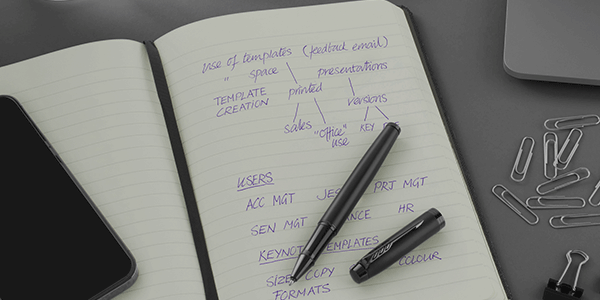 use of templates (feedback email)
" space presentations
TEMPLATE CREATION printed versions
sales "office" use KEY
USERS
ACC MGT PRJ MGT
SEN MGT HR
KEYNOTE TEMPLATES
SIZE COPY COLOUR
FORMATS